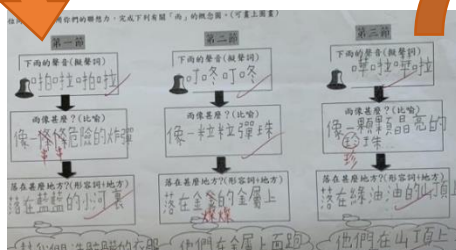 用你們的聯想力,完成下列有關「雨」的概念圖。(可畫上圖畫)
第一節
下雨的聲音(擬聲詞)
啪啦啪啦
雨像甚麼?(比喻)
像一條條危險的炸彈
落在甚麼地方?(形容詞+地方)
落在藍藍的小河裏
第二節
下雨的聲音(擬聲詞)
叮咚叮咚
雨像甚麼?(比喻)
像一粒粒彈珠
落在甚麼地方?(形容詞+地方)
落在金的金屬上
第三節
下雨的聲音(擬聲詞)
嘩啦嘩啦
雨像甚麼?(比喻)
像一顆顆晶亮的
珠
珍
落在甚麼地方?(形容詞+地方)
落在綠油油的山頂上
他們在金屬上面跳
他們在山頂上